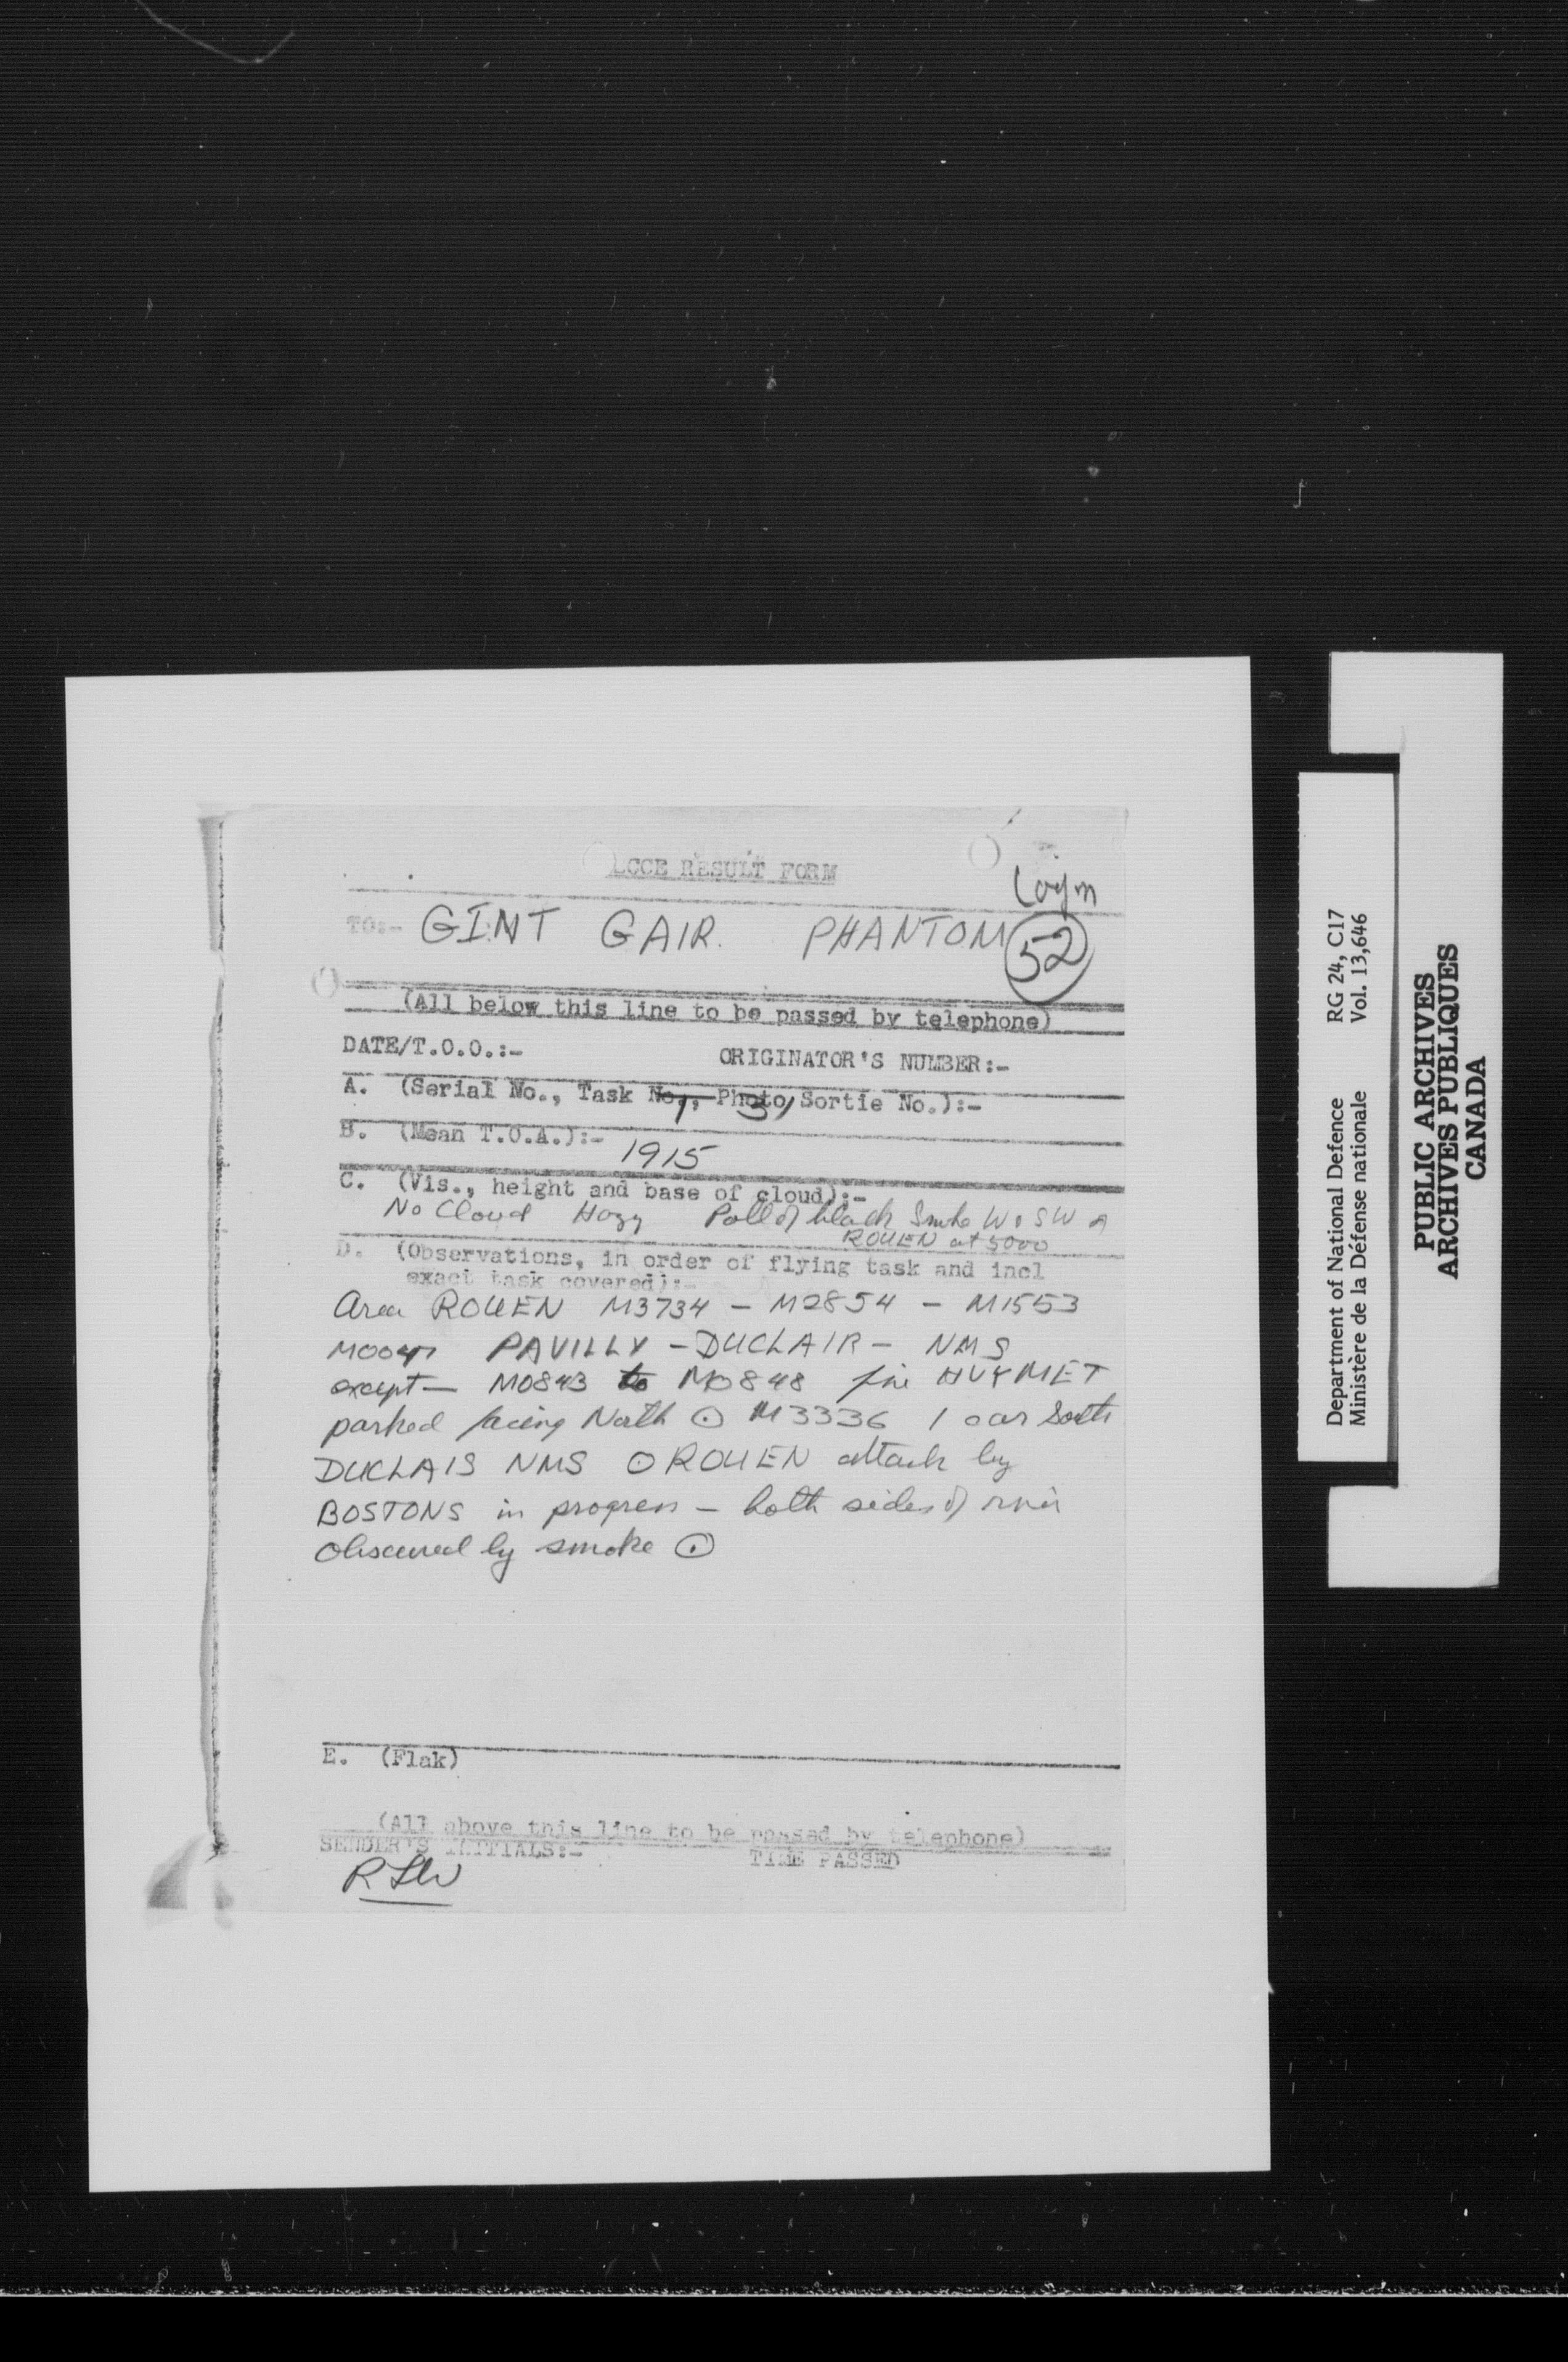 RESULT FORM
TO:- GINT GAIR. PHANTOM 52
(All below this line to be passed by telephone)
DATE/T.O.O.:- ORIGINATOR'S NUMBER:-
A. (Serial No., Task No., Photo Sortie No.):-
B. (Mean T.O.A.):- 1915
C. (Vis., height and base of cloud):-
No Cloud Hazy Pall of black Smoke W SW
ROUEN at 5000
D. (Observations, in order of flying task and incl
exact task covered):-
Area ROUEN M3734 - M2854 - M1553
PAVILLY - DUCLAIR - NMS
except - M0843 to M0848 five MET
parked facing North ⊙ M3336 1 car South
DUCLAIS NMS ⊙ ROUEN attack by
BOSTONS in progress - both sides of river
obscured by smoke ⊙
E. (Flak)
(All above this line to be passed by telephone)
SENDER'S INITIALS:- TIME PASSED
Department of National Defence RG 24, C17
Ministère de la Défense nationale Vol. 13,646
PUBLIC ARCHIVES
ARCHIVES PUBLIQUES
CANADA